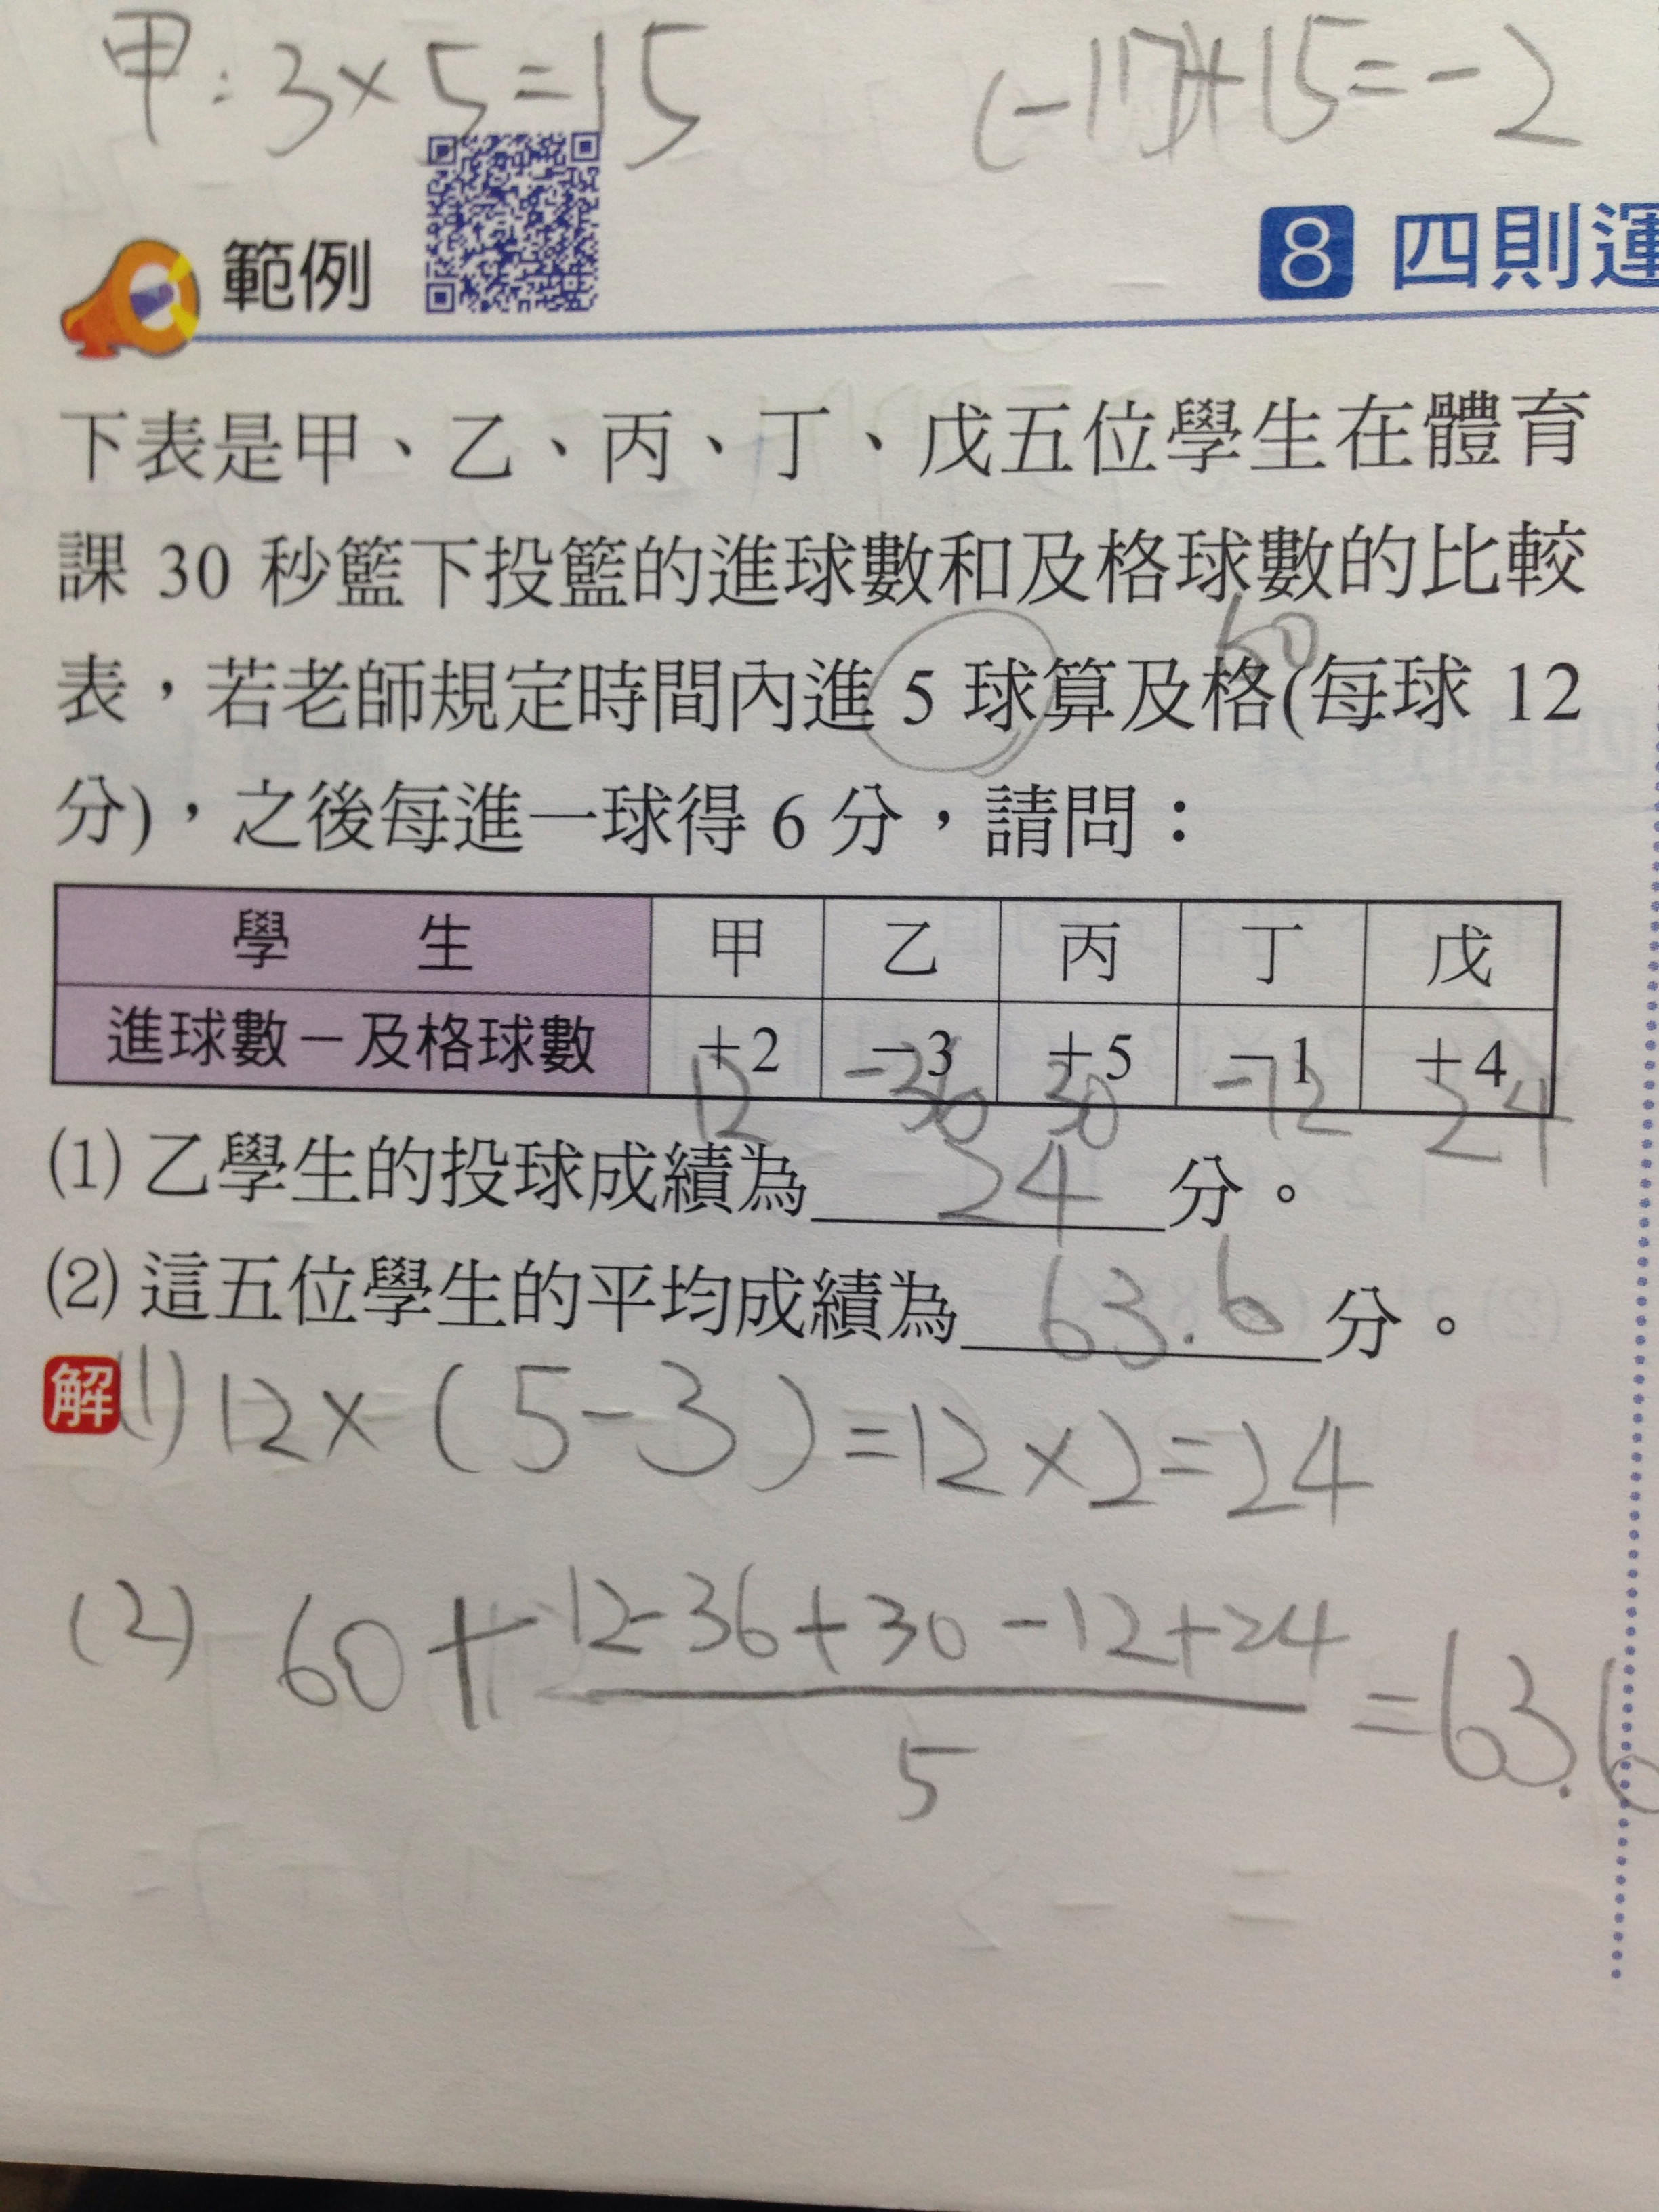 甲:3×5=15
(-17)+15=-2
範例
8 四則運
下表是甲、乙、丙、丁、戊五位學生在體育
課 30 秒籃下投籃的進球數和及格球數的比較
60
表,若老師規定時間內進 5 球算及格(每球 12
分),之後每進一球得 6 分,請問:
學 生 甲 乙 丙 丁 戊
進球數-及格球數 +2 -3 +5 -1 +4
12 -36 30 -12 24
(1) 乙學生的投球成績為 24 分。
(2) 這五位學生的平均成績為 63.6 分。
解 (1) 12×(5-3)=12×2=24
12-36+30-12+24
(2) 60+ =63.6
5